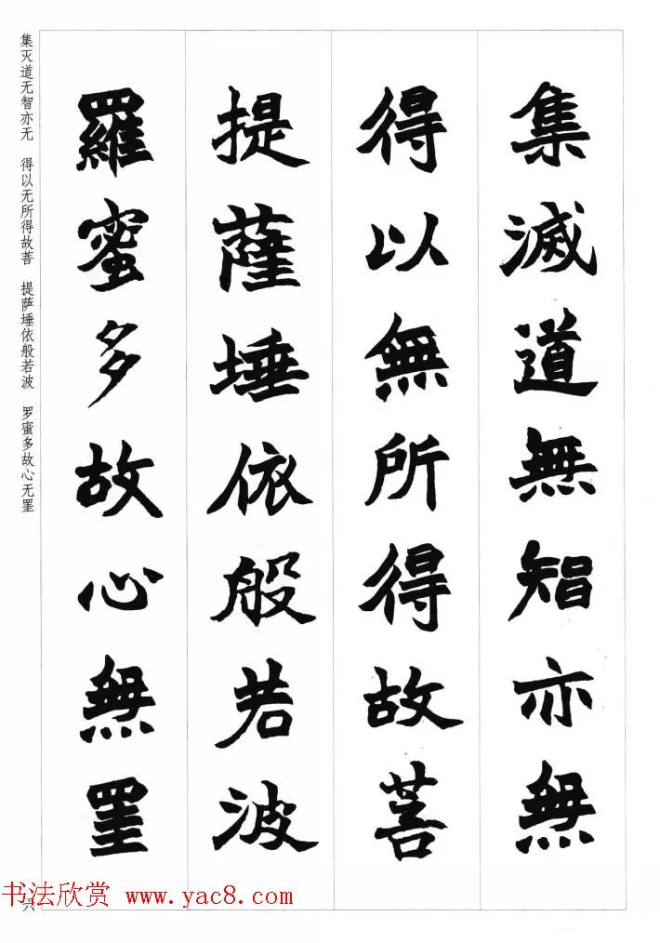 集滅道無智亦無
得以無所得故菩
提薩埵依般若波
羅蜜多故心無罣
集灭道无智亦无 得以无所得故菩 提萨埵依般若波 罗蜜多故心无罣
六
书法欣赏 www.yac8.com